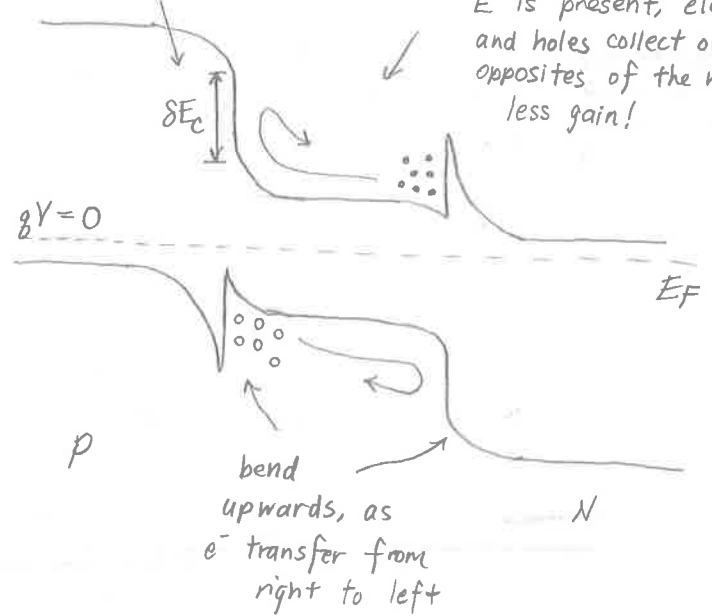 E is present, ele
and holes collect o
opposites of the
less gain!
δE_c
qV = 0
E_F
P
bend
upwards, as
e⁻ transfer from
right to left
N